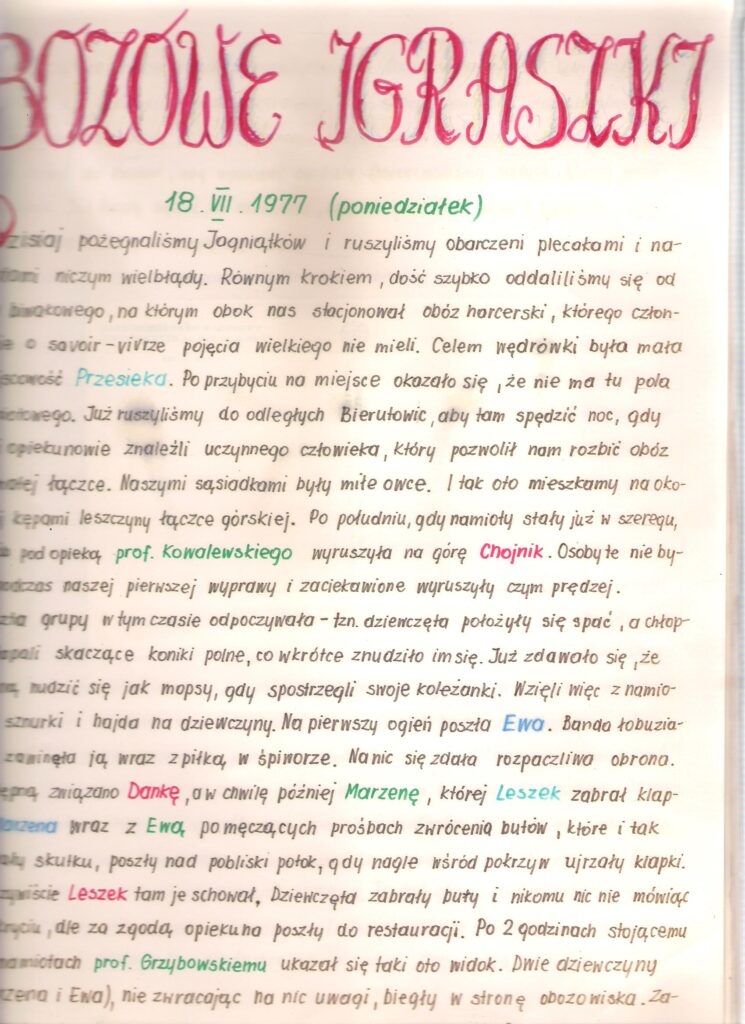 BOZOWE IGRASZKI
18.VII.1977 (poniedziałek)
zisiaj pożegnaliśmy Jagniątków i ruszyliśmy obarczeni plecakami i na-
niczym wielbłądy. Równym krokiem, dość szybko oddaliliśmy się od
biwakowego, na którym obok nas stacjonował obóz harcerski, którego człon-
o savoir-vivrze pojęcia wielkiego nie mieli. Celem wędrówki była mała
Przesieka. Po przybyciu na miejsce okazało się, że nie ma tu pola
Już ruszyliśmy do odległych Bierutowic, aby tam spędzić noc, gdy
opiekunowie znaleźli uczynnego człowieka, który pozwolił nam rozbić obóz
łączce. Naszymi sąsiadkami były miłe owce. I tak oto mieszkamy na oko-
kępami leszczyny łączce górskiej. Po południu, gdy namioty stały już w szeregu,
pod opieką prof. Kowalewskiego wyruszyła na górę Chojnik. Osoby te nie by-
podczas naszej pierwszej wyprawy i zaciekawione wyruszyły czym prędzej.
grupy w tym czasie odpoczywała - tzn. dziewczęta położyły się spać, a chłop-
skaczące koniki polne, co wkrótce znudziło im się. Już zdawało się, że
nudzić się jak mopsy, gdy spostrzegli swoje koleżanki. Wzięli więc z namio-
sznurki i hajda na dziewczyny. Na pierwszy ogień poszła Ewa. Banda łobuzia-
zawinęła ją wraz z piłką w śpiworze. Na nic się zdała rozpaczliwa obrona.
związano Dankę, a w chwilę później Marzenę, której Leszek zabrał klap-
Marzena wraz z Ewą po męczących prośbach zwrócenia butów, które i tak
skutku, poszły nad pobliski potok, gdy nagle wśród pokrzyw ujrzały klapki.
Leszek tam je schował. Dziewczęta zabrały buty i nikomu nic nie mówiąc
, ale za zgodą opiekuna poszły do restauracji. Po 2 godzinach stojącemu
namiotach prof. Grzybowskiemu ukazał się taki oto widok. Dwie dziewczyny
zena i Ewa), nie zwracając na nic uwagi, biegły w stronę obozowiska. Za-